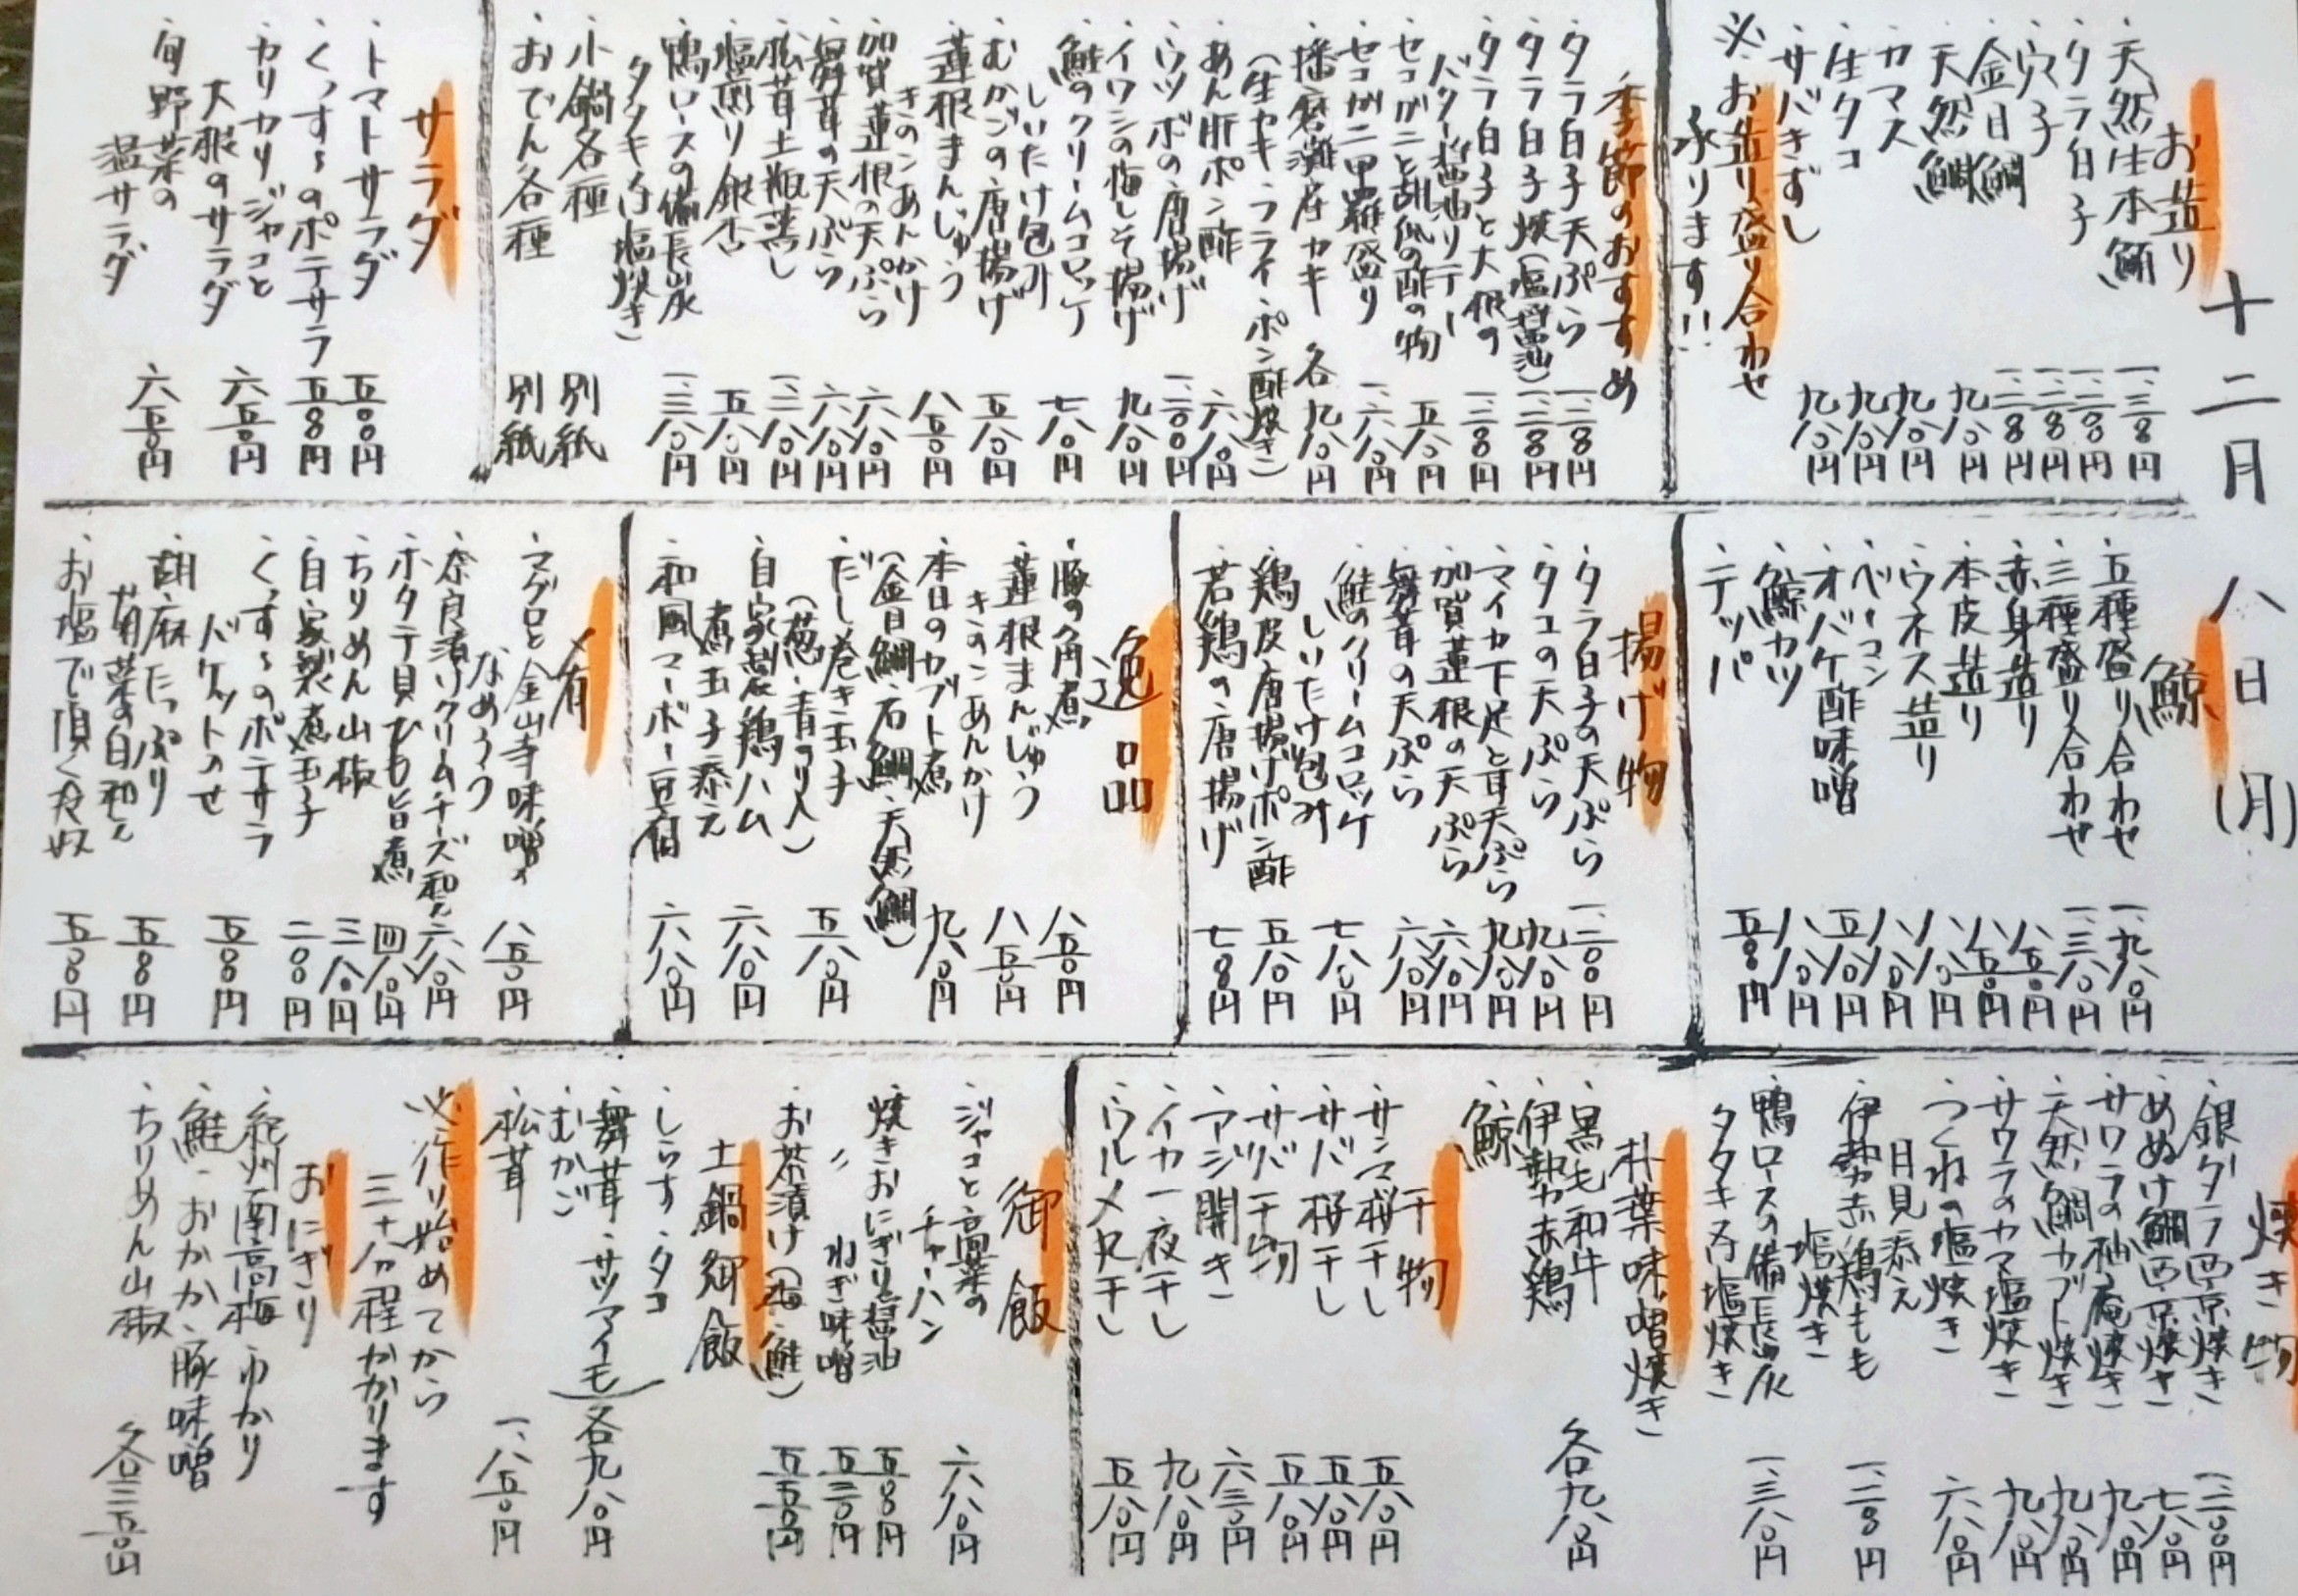 十二月八日(月)
お造り
・天然生本鮪 一、三八〇円
・タラ白子 一、二八〇円
・穴子 一、二八〇円
・金目鯛 一、二八〇円
・天然鯛 九八〇円
・カマス 九八〇円
・生タコ 九八〇円
・サバきずし 九八〇円
※お造り盛り合わせ
承ります!!
季節のおすすめ
・タラ白子天ぷら 一、二八〇円
・タラ白子焼(塩・醤油) 一、二八〇円
・タラ白子と大根の
バター醤油ソテー 一、二八〇円
・セコガニと胡瓜の酢の物 五八〇円
・セコガニ甲羅盛り 一、六八〇円
・播磨灘産カキ 各九八〇円
(生カキ・フライ・ポン酢焼き)
・あん肝ポン酢 六八〇円
・ウツボの唐揚げ 一、二〇〇円
・イワシの梅しそ揚げ 九八〇円
・鮭のクリームコロッケ
しいたけ包み 七八〇円
・むかごの唐揚げ 五八〇円
・蓮根まんじゅう
きのこあんかけ 八五〇円
・加賀蓮根の天ぷら 六八〇円
・舞茸の天ぷら 六八〇円
・松茸土瓶蒸し 一、三八〇円
・塩煎り銀杏 五八〇円
・鴨ロースの備長炭
タタキ(わ塩焼き) 一、三八〇円
・小鍋各種 別紙
・おでん各種 別紙
サラダ
・トマトサラダ 五〇〇円
・くっす〜のポテサラ 五八〇円
・カリカリジャコと
大根のサラダ 六五〇円
・旬野菜の
温サラダ 六五〇円
鯨
・五種盛り合わせ 一、九八〇円
・三種盛り合わせ 一、三八〇円
・赤身造り 八五〇円
・本皮造り 八五〇円
・ウネス造り 八八〇円
・ベーコン 八八〇円
・オバケ酢味噌 五八〇円
・鯨カツ 八八〇円
・テッパ 五五〇円
揚げ物
・タラ白子の天ぷら 一、二〇〇円
・タコの天ぷら 九八〇円
・マイカ下足と茸天ぷら 九八〇円
・加賀蓮根の天ぷら 六八〇円
・舞茸の天ぷら 六八〇円
・鮭のクリームコロッケ
しいたけ包み 七八〇円
・鶏皮唐揚げポン酢 五八〇円
・若鶏の唐揚げ 七八〇円
逸品
・豚の角煮 八五〇円
・蓮根まんじゅう
きのこあんかけ 八五〇円
・本日のカブト煮 九八〇円
(金目鯛・石鯛・天然鯛)
・だし巻き玉子 五八〇円
(葱・青のり入)
・自家製鶏ハム
煮玉子添え 六八〇円
・和風マーボー豆腐 六八〇円
〆有
・マグロと金山寺味噌の
なめろう 八五〇円
・奈良漬けクリームチーズ和え 六八〇円
・ホタテ貝ひも旨煮 四八〇円
・ちりめん山椒 三八〇円
・自家製煮玉子 二〇〇円
・くっす〜のポテサラ
バケットのせ 五五〇円
・胡麻たっぷり
菊菜の白和え 五五〇円
・お塩で頂く冷奴 五五〇円
焼き物
・銀ダラ西京焼き 一、二〇〇円
・めぬけ鯛西京焼き 七八〇円
・サワラの柚庵焼き 九八〇円
・天然鯛カブト焼き 九八〇円
・サワラのカマ塩焼き 九八〇円
・つくねの塩焼き
月見添え 六八〇円
・伊勢赤鶏もも
塩焼き 一、二八〇円
・鴨ロースの備長炭
タタキわ塩焼き 一、三八〇円
朴葉味噌焼き
・黒毛和牛
・伊勢赤鶏
・鯨 各九八〇円
干物
・サンマ桜干し 五八〇円
・サバ桜干し 五八〇円
・サバ干物 五八〇円
・アジ開き 六三〇円
・イカ一夜干し 九八〇円
・ウルメ丸干し 五八〇円
御飯
・ジャコと高菜の
チャーハン 六八〇円
・焼きおにぎり醤油 五〇〇円
・〃 ねぎ味噌 五三〇円
・お茶漬け(梅・鮭) 五五〇円
土鍋御飯
・しらす・タコ
・舞茸・サツマイモ
・むかご 各九八〇円
・松茸 一、八五〇円
※作り始めてから
三十分程かかります
おにぎり
・紀州南高梅・ゆかり
・鮭・おかか・豚味噌
・ちりめん山椒 各三五〇円